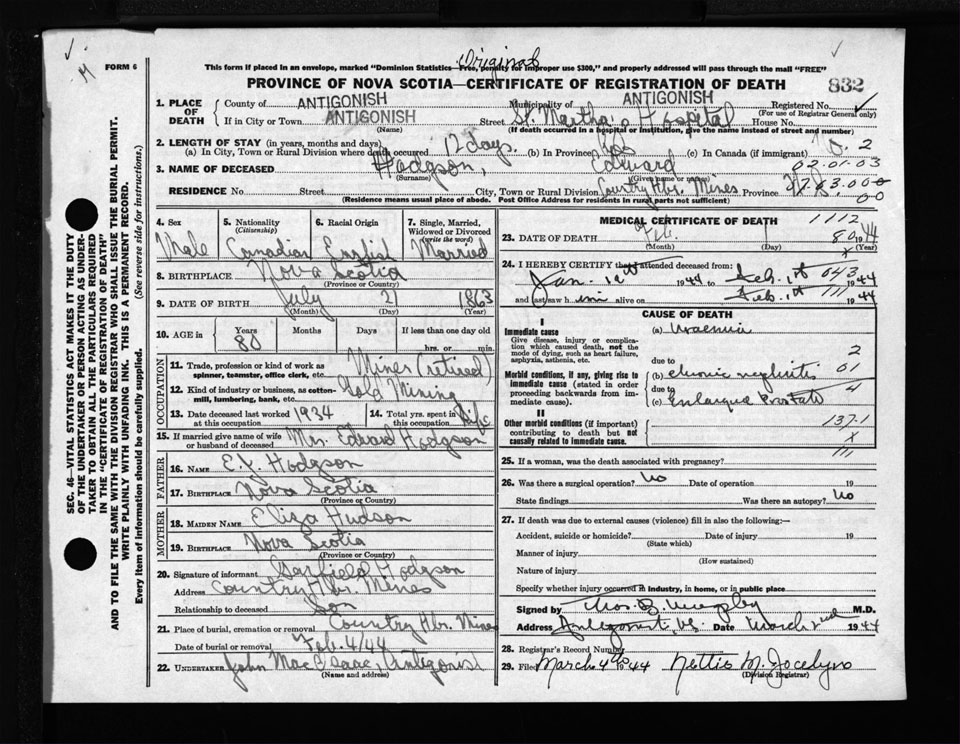 Original
M
FORM 6
This form if placed in an envelope, marked "Dominion Statistics—Free, penalty for improper use $300," and properly addressed will pass through the mail "FREE"
PROVINCE OF NOVA SCOTIA—CERTIFICATE OF REGISTRATION OF DEATH
832
SEC. 46—VITAL STATISTICS ACT MAKES IT THE DUTY OF THE UNDERTAKER OR PERSON ACTING AS UNDERTAKER TO OBTAIN ALL THE PARTICULARS REQUIRED IN THE "CERTIFICATE OF REGISTRATION OF DEATH"
AND TO FILE THE SAME WITH THE DIVISION REGISTRAR WHO SHALL ISSUE THE BURIAL PERMIT.
WRITE PLAINLY WITH UNFADING INK. THIS IS A PERMANENT RECORD.
Every item of information should be carefully supplied. (See reverse side for instructions.)
1. PLACE OF DEATH
County of ANTIGONISH Municipality of ANTIGONISH Registered No.
(For use of Registrar General only)
If in City or Town ANTIGONISH Street St. Martha's Hospital House No.
(Name) (If death occurred in a hospital or institution, give the name instead of street and number)
2. LENGTH OF STAY (in years, months and days)
(a) In City, Town or Rural Division where death occurred 17 days. (b) In Province (c) In Canada (if immigrant)
02.01.03
3. NAME OF DECEASED Hodgson, Edward
(Surname) (Given name or names)
RESIDENCE No. Street City, Town or Rural Division Country Hbr. Mines Province N.S.
(Residence means usual place of abode. Post Office Address for residents in rural parts not sufficient)
4. Sex Male
5. Nationality (Citizenship) Canadian
6. Racial Origin English
7. Single, Married, Widowed or Divorced (write the word) Married
8. BIRTHPLACE Nova Scotia
(Province or Country)
9. DATE OF BIRTH July 21 1863
(Month) (Day) (Year)
10. AGE in Years Months Days If less than one day old
80 hrs. or min.
OCCUPATION
11. Trade, profession or kind of work as spinner, teamster, office clerk, etc. Miner (retired)
12. Kind of industry or business, as cotton-mill, lumbering, bank, etc. Gold Mining
13. Date deceased last worked at this occupation 1934
14. Total yrs. spent in this occupation Life
15. If married give name of wife or husband of deceased Mrs. Edward Hodgson
FATHER
16. NAME E.J. Hodgson
17. BIRTHPLACE Nova Scotia
(Province or Country)
MOTHER
18. MAIDEN NAME Eliza Hudson
19. BIRTHPLACE Nova Scotia
(Province or Country)
20. Signature of informant Garfield Hodgson
Address Country Hbr. Mines
Relationship to deceased Son
21. Place of burial, cremation or removal Country Hbr. Mines
Date of burial or removal Feb. 4/44
22. UNDERTAKER John MacIsaac, Antigonish
(Name and address)
MEDICAL CERTIFICATE OF DEATH
1112
23. DATE OF DEATH Feb. 1944
(Month) (Year)
24. I HEREBY CERTIFY that attended deceased from:
Jan. 1944 to Feb. 1st 1944
and last saw him alive on Feb. 1st 1944
CAUSE OF DEATH
I
Immediate cause
Give disease, injury or complication which caused death, not the mode of dying, such as heart failure, asphyxia, asthenia, etc.
(a) Uraemia
due to
2
Morbid conditions, if any, giving rise to immediate cause (stated in order proceeding backwards from immediate cause).
(b) chronic nephritis
01
due to
(c) Enlarged Prostate
4
II
Other morbid conditions (if important) contributing to death but not causally related to immediate cause.
137-1
X
111
25. If a woman, was the death associated with pregnancy?
26. Was there a surgical operation? No Date of operation 19
State findings Was there an autopsy? No
27. If death was due to external causes (violence) fill in also the following:—
Accident, suicide or homicide? Date of injury 19
(State which)
Manner of injury
(How sustained)
Nature of injury
Specify whether injury occurred in industry, in home, or in public place
Signed by Thos. B. Murphy M.D.
Address Antigonish, N.S. Date March 2nd 1944
28. Registrar's Record Number
29. Filed March 4th 1944 Nettie M. Jocelyn
(Division Registrar)